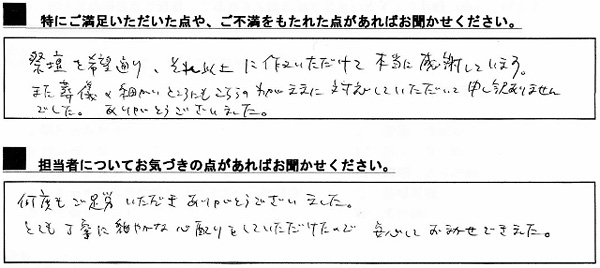 ■ 特にご満足いただいた点や、ご不満をもたれた点があればお聞かせください。
祭壇を希望通り、それ以上に作っていただけて本当に感謝しています。
また葬儀の細かいところにもこちらのわがままに対応していただいて申し訳ありません
でした。ありがとうございました。
■ 担当者についてお気づきの点があればお聞かせください。
何度もご足労いただきありがとうございました。
とても丁寧に細やかな心配りをしていただけたので安心しておまかせできました。